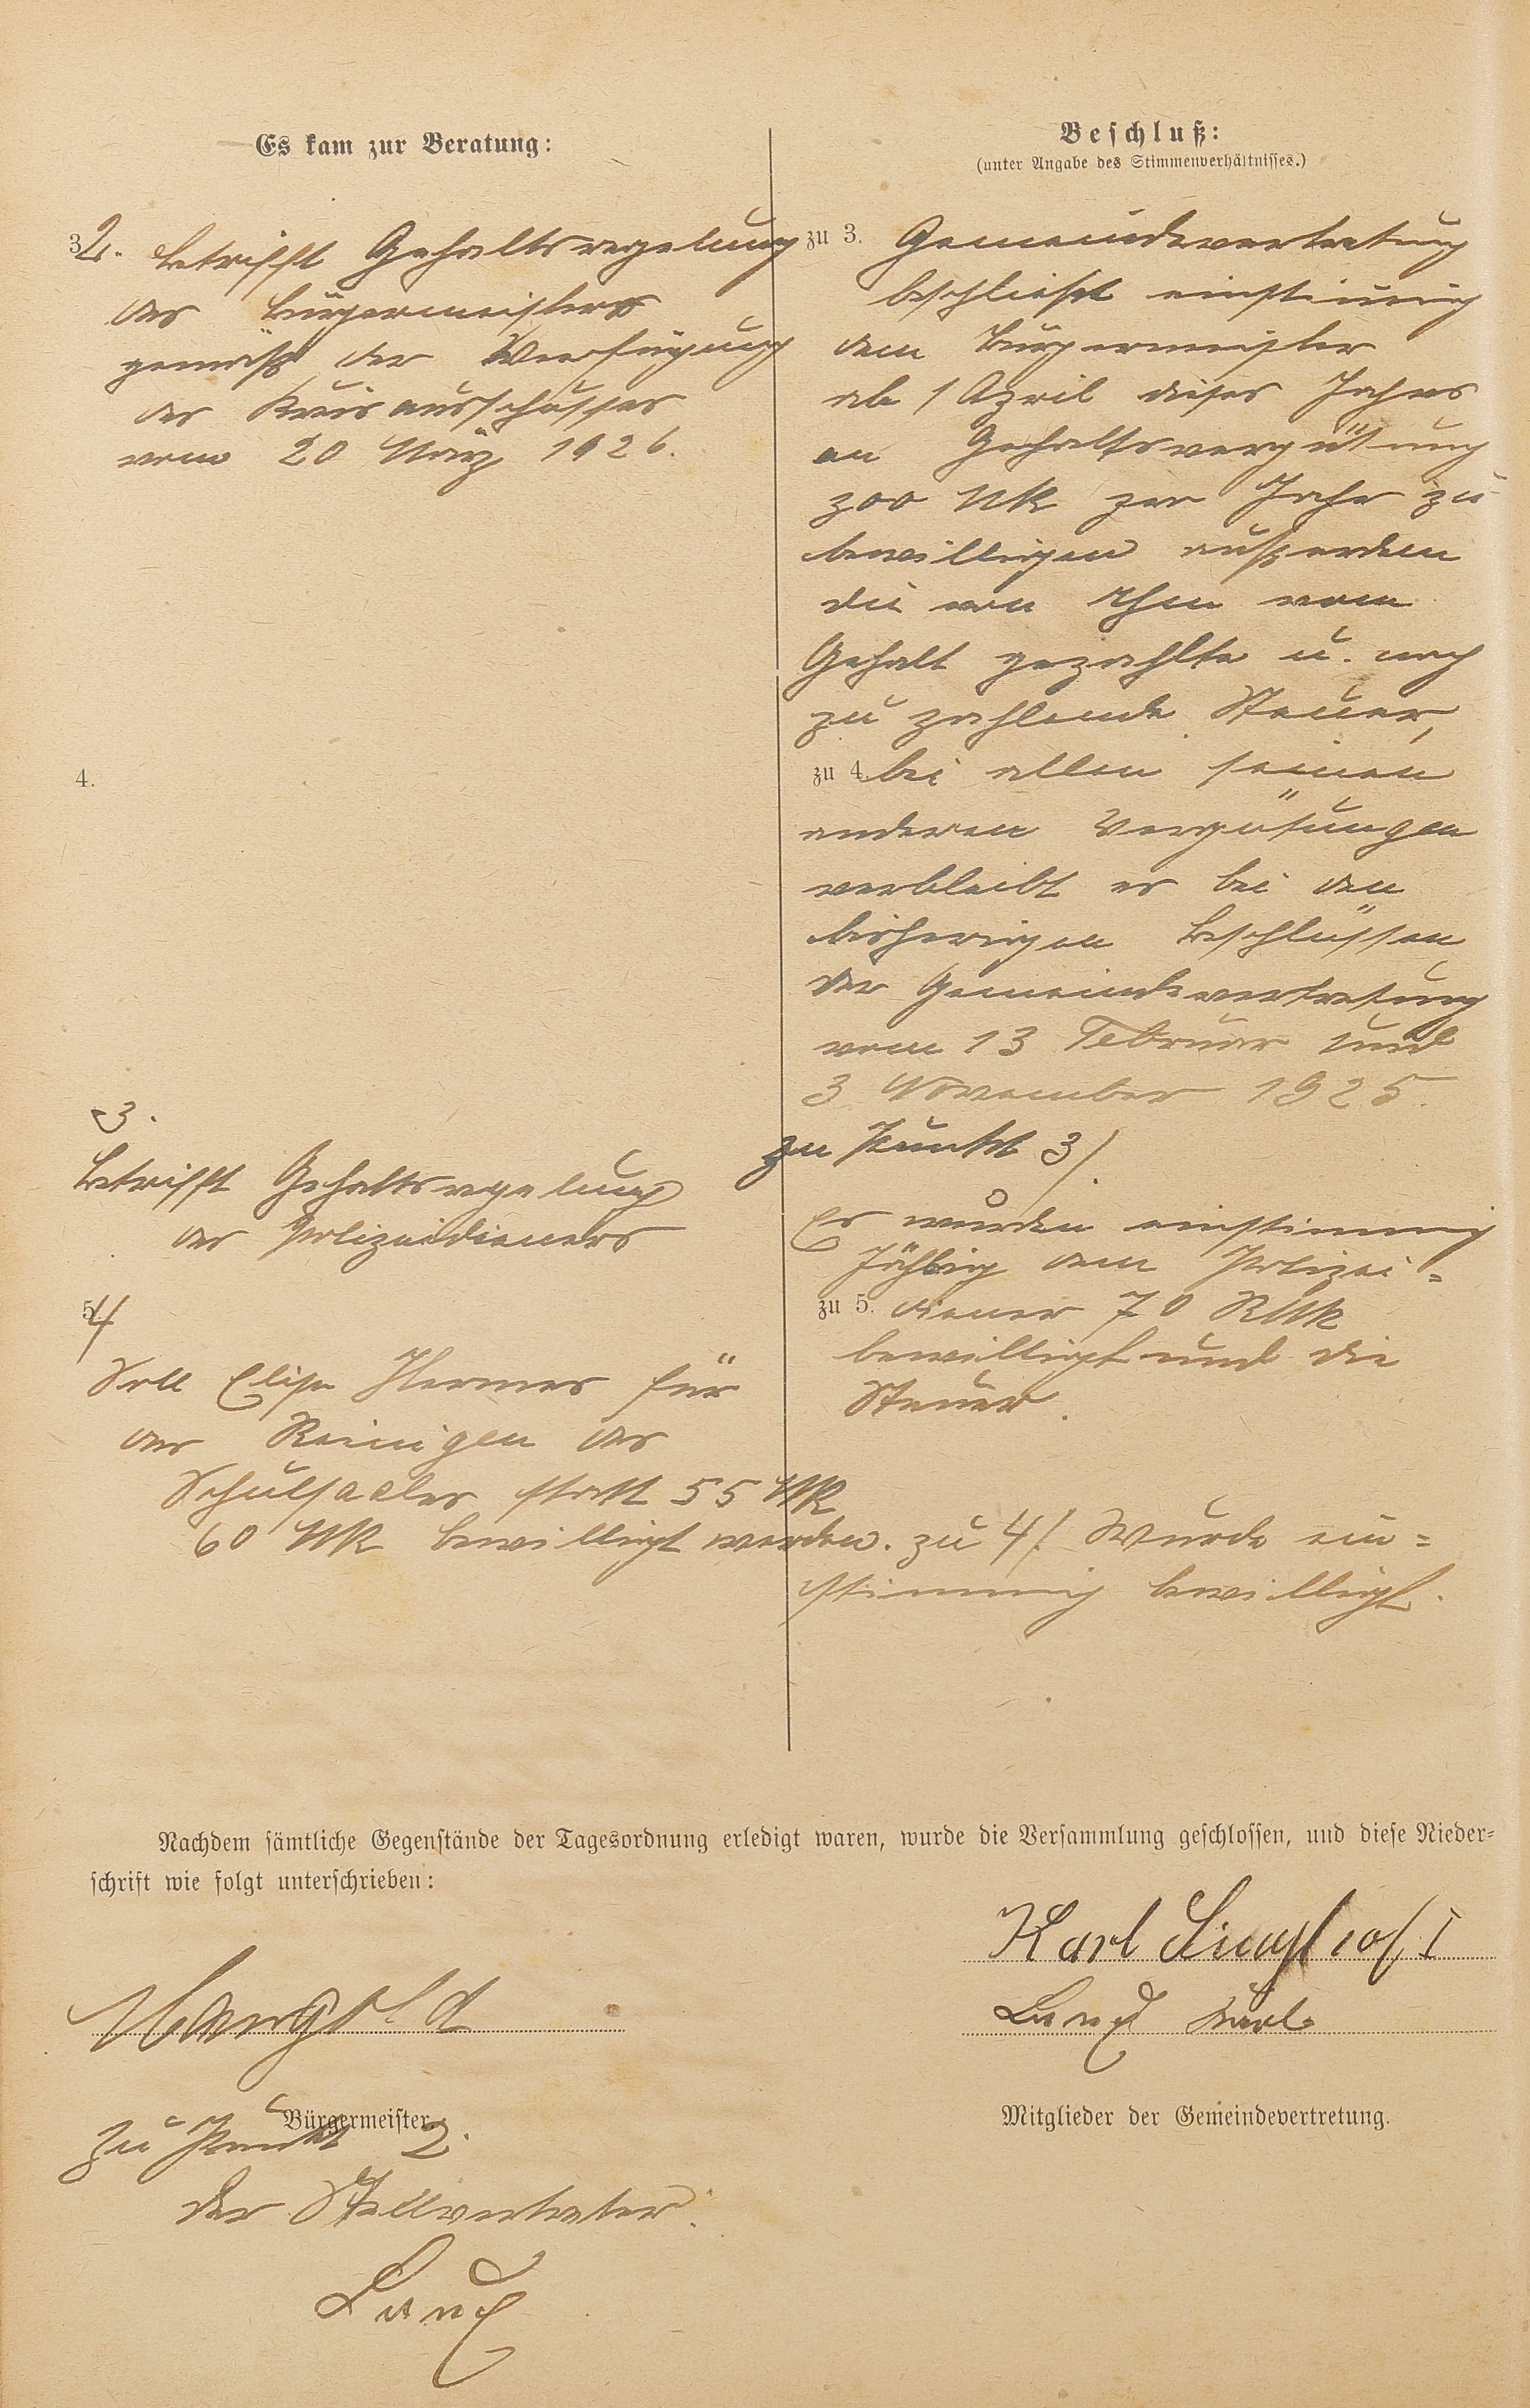 Es kam zur Beratung:
2. betrifft Gehaltsregelung
des Bürgermeisters
gemäß der Verfügung
des Kreisausschusses
vom 20 März 1926.
4.
3.
betrifft Gehaltsregelung
des Polizeidieners
4
Soll Elise Hermes für
das Reinigen des
Schulsaales statt 55 Mk
60 Mk bewilligt werden.
Beschluß:
(unter Angabe des Stimmenverhältnisses.)
zu 3. Gemeindevertretung
beschließt einstimmig
dem Bürgermeister
ab 1 April dieses Jahres
an Gehaltsvergütung
300 Mk per Jahr zu
bewilligen außerdem
die von Ihm vom
Gehalt gezahlte u. noch
zu zahlende Steuer,
zu 4. bei allen seinen
anderen Vergütungen
verbleibt es bei den
bisherigen Beschlüssen
der Gemeindevertretung
vom 13 Februar und
3 November 1925.
zu Punkt 3/.
Es wurden einstimmig
jährlig dem Polizei=
zu 5. diener 70 RMk
bewilligt und die
Steuer.
zu 4/. Wurde ein=
stimmig bewilligt.
Nachdem sämtliche Gegenstände der Tagesordnung erledigt waren, wurde die Versammlung geschlossen, und diese Nieder=
schrift wie folgt unterschrieben:
Karl I
Mangold
Karl
Bürgermeister
Mitglieder der Gemeindevertretung.
zu Punkt 2.
Der Stellvertreter.